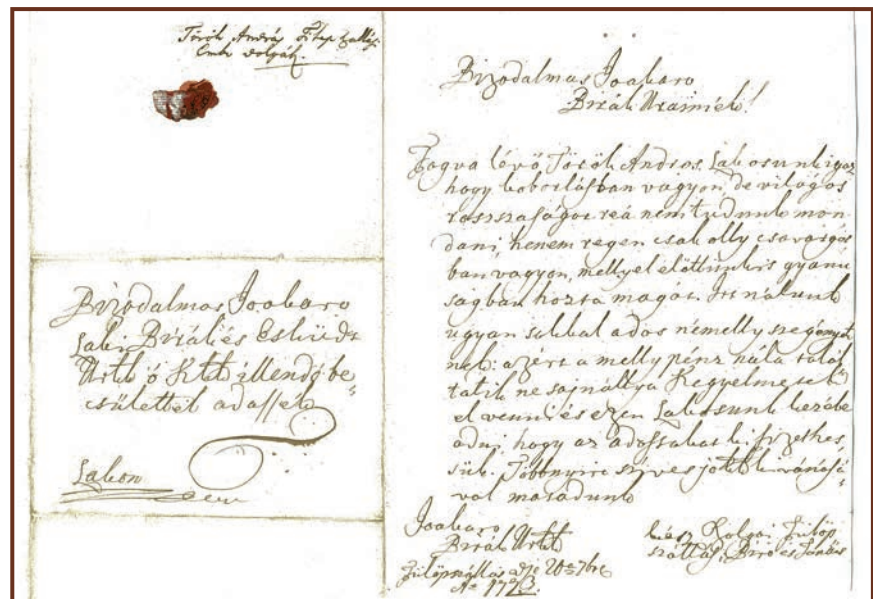 Török András Filep szallási
Embr dolgáb.
Bizodalmas Jóakaró
Laki Birák és Esküdt
Urtk ő Kltk illendő be
csülettel adassék
Lakon
Bizodalmas Jóakaró
Birák Uraimék!
Fogva lévő Török András Lakosunk igaz
hogy koborlásban vagyon, de világos
rosszaságot reá nem tudunk mon
dani, hanem regen csak olly csavargás
ban vagyon, mellyel előttünk is gyanu
ságban hozta magát. Itt nálunk
ugyan sokkal ados némelly szegények
nek: azért a melly pénz nála talál
tatik ne sajnállya Kegyelmetek
el venni és ezen Lakosunk kezébe
adni, hogy az adossabat ki fizethes
sük. Többnyire szives jókk kivánásá
val maradunk
Jóakaró
Birák Urtk
Fülöpszállás die 20a 7bris
Ao 1773.
kész Szolgai Fülöp
szállási Biró és Tanács